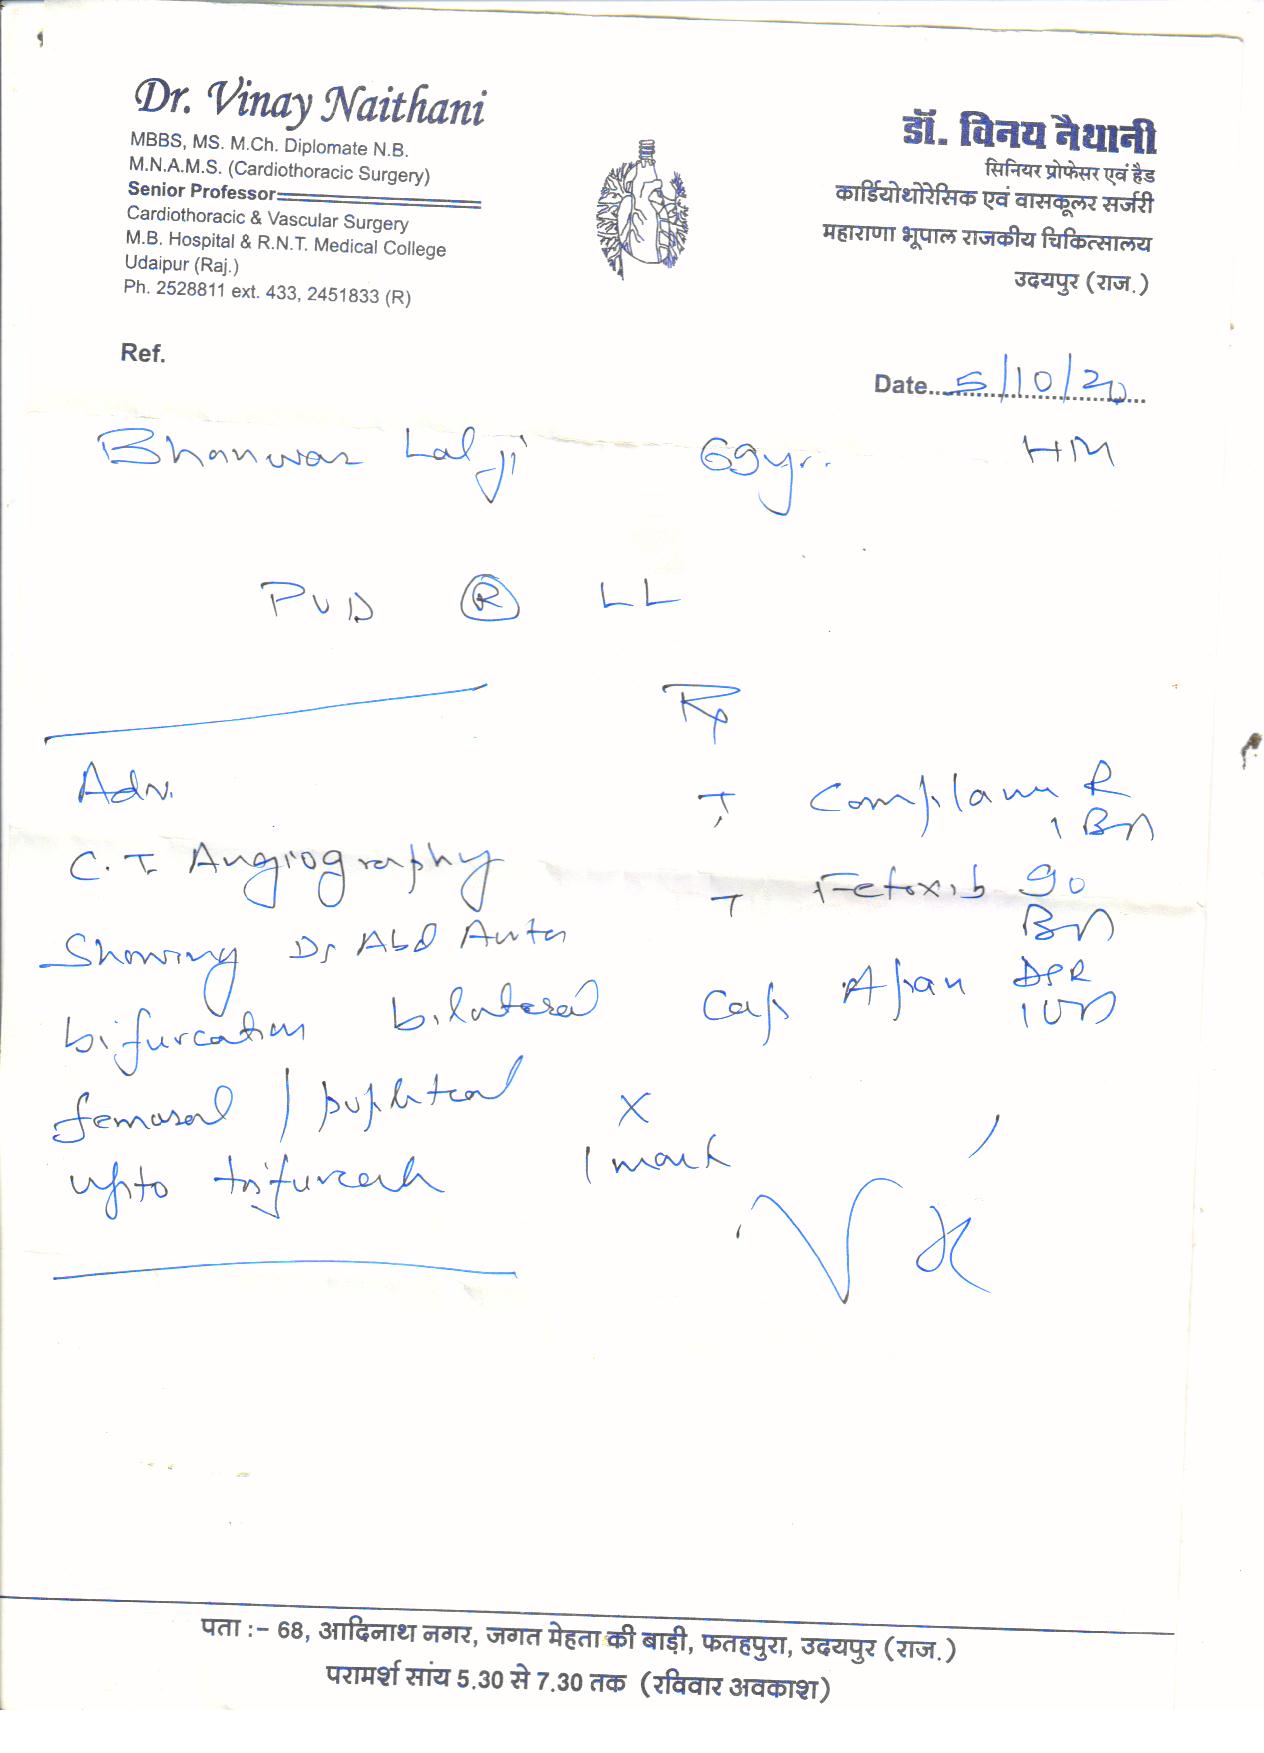 Dr. Vinay Naithani
MBBS, MS. M.Ch. Diplomate N.B.
M.N.A.M.S. (Cardiothoracic Surgery)
Senior Professor
Cardiothoracic & Vascular Surgery
M.B. Hospital & R.N.T. Medical College
Udaipur (Raj.)
Ph. 2528811 ext. 433, 2451833 (R)
डॉ. विनय नैथानी
सिनियर प्रोफेसर एवं हैड
कार्डियोथोरेसिक एवं वासकूलर सर्जरी
महाराणा भूपाल राजकीय चिकित्सालय
उदयपुर (राज.)
Ref.
Date....5/10/20
Bhanwar Lal ji 69yr. HM
PVD Ⓡ LL
Adv.
C.T. Angiography
Showing Ds Abd
bifurcation bilateral
femoral /
upto
Rx
T R
1 BD
T 90
BD
Cap DSR
1 OD
x
1
पता :– 68, आदिनाथ नगर, जगत मेहता की बाड़ी, फतहपुरा, उदयपुर (राज.)
परामर्श सांय 5.30 से 7.30 तक (रविवार अवकाश)